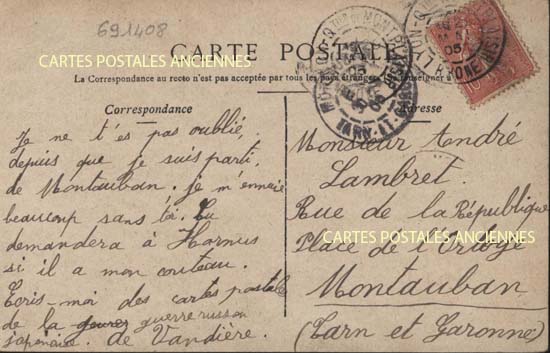 691408
CARTE POSTALE
CARTES POSTALES ANCIENNES
La Correspondance au recto n'est pas acceptée par tous les pays étrangers. Se renseigner à
Correspondance
Je ne t'es pas oublié
depuis que je suis parti
de Montauban. je m'ennuie
beaucoup sans toi. Tu
demandera à Harnus
si il a mon couteau.
Ecris-moi des cartes postale
de la guerre guerre russon
japonaise. de Vandière.
Adresse
Monsieur André
Lambret.
Rue de la République
Place de l'
CARTES POSTALES ANCIENNES
Montauban
(Tarn et Garonne)
MONTAUBAN
TARN-ET-GARONNE
05
10